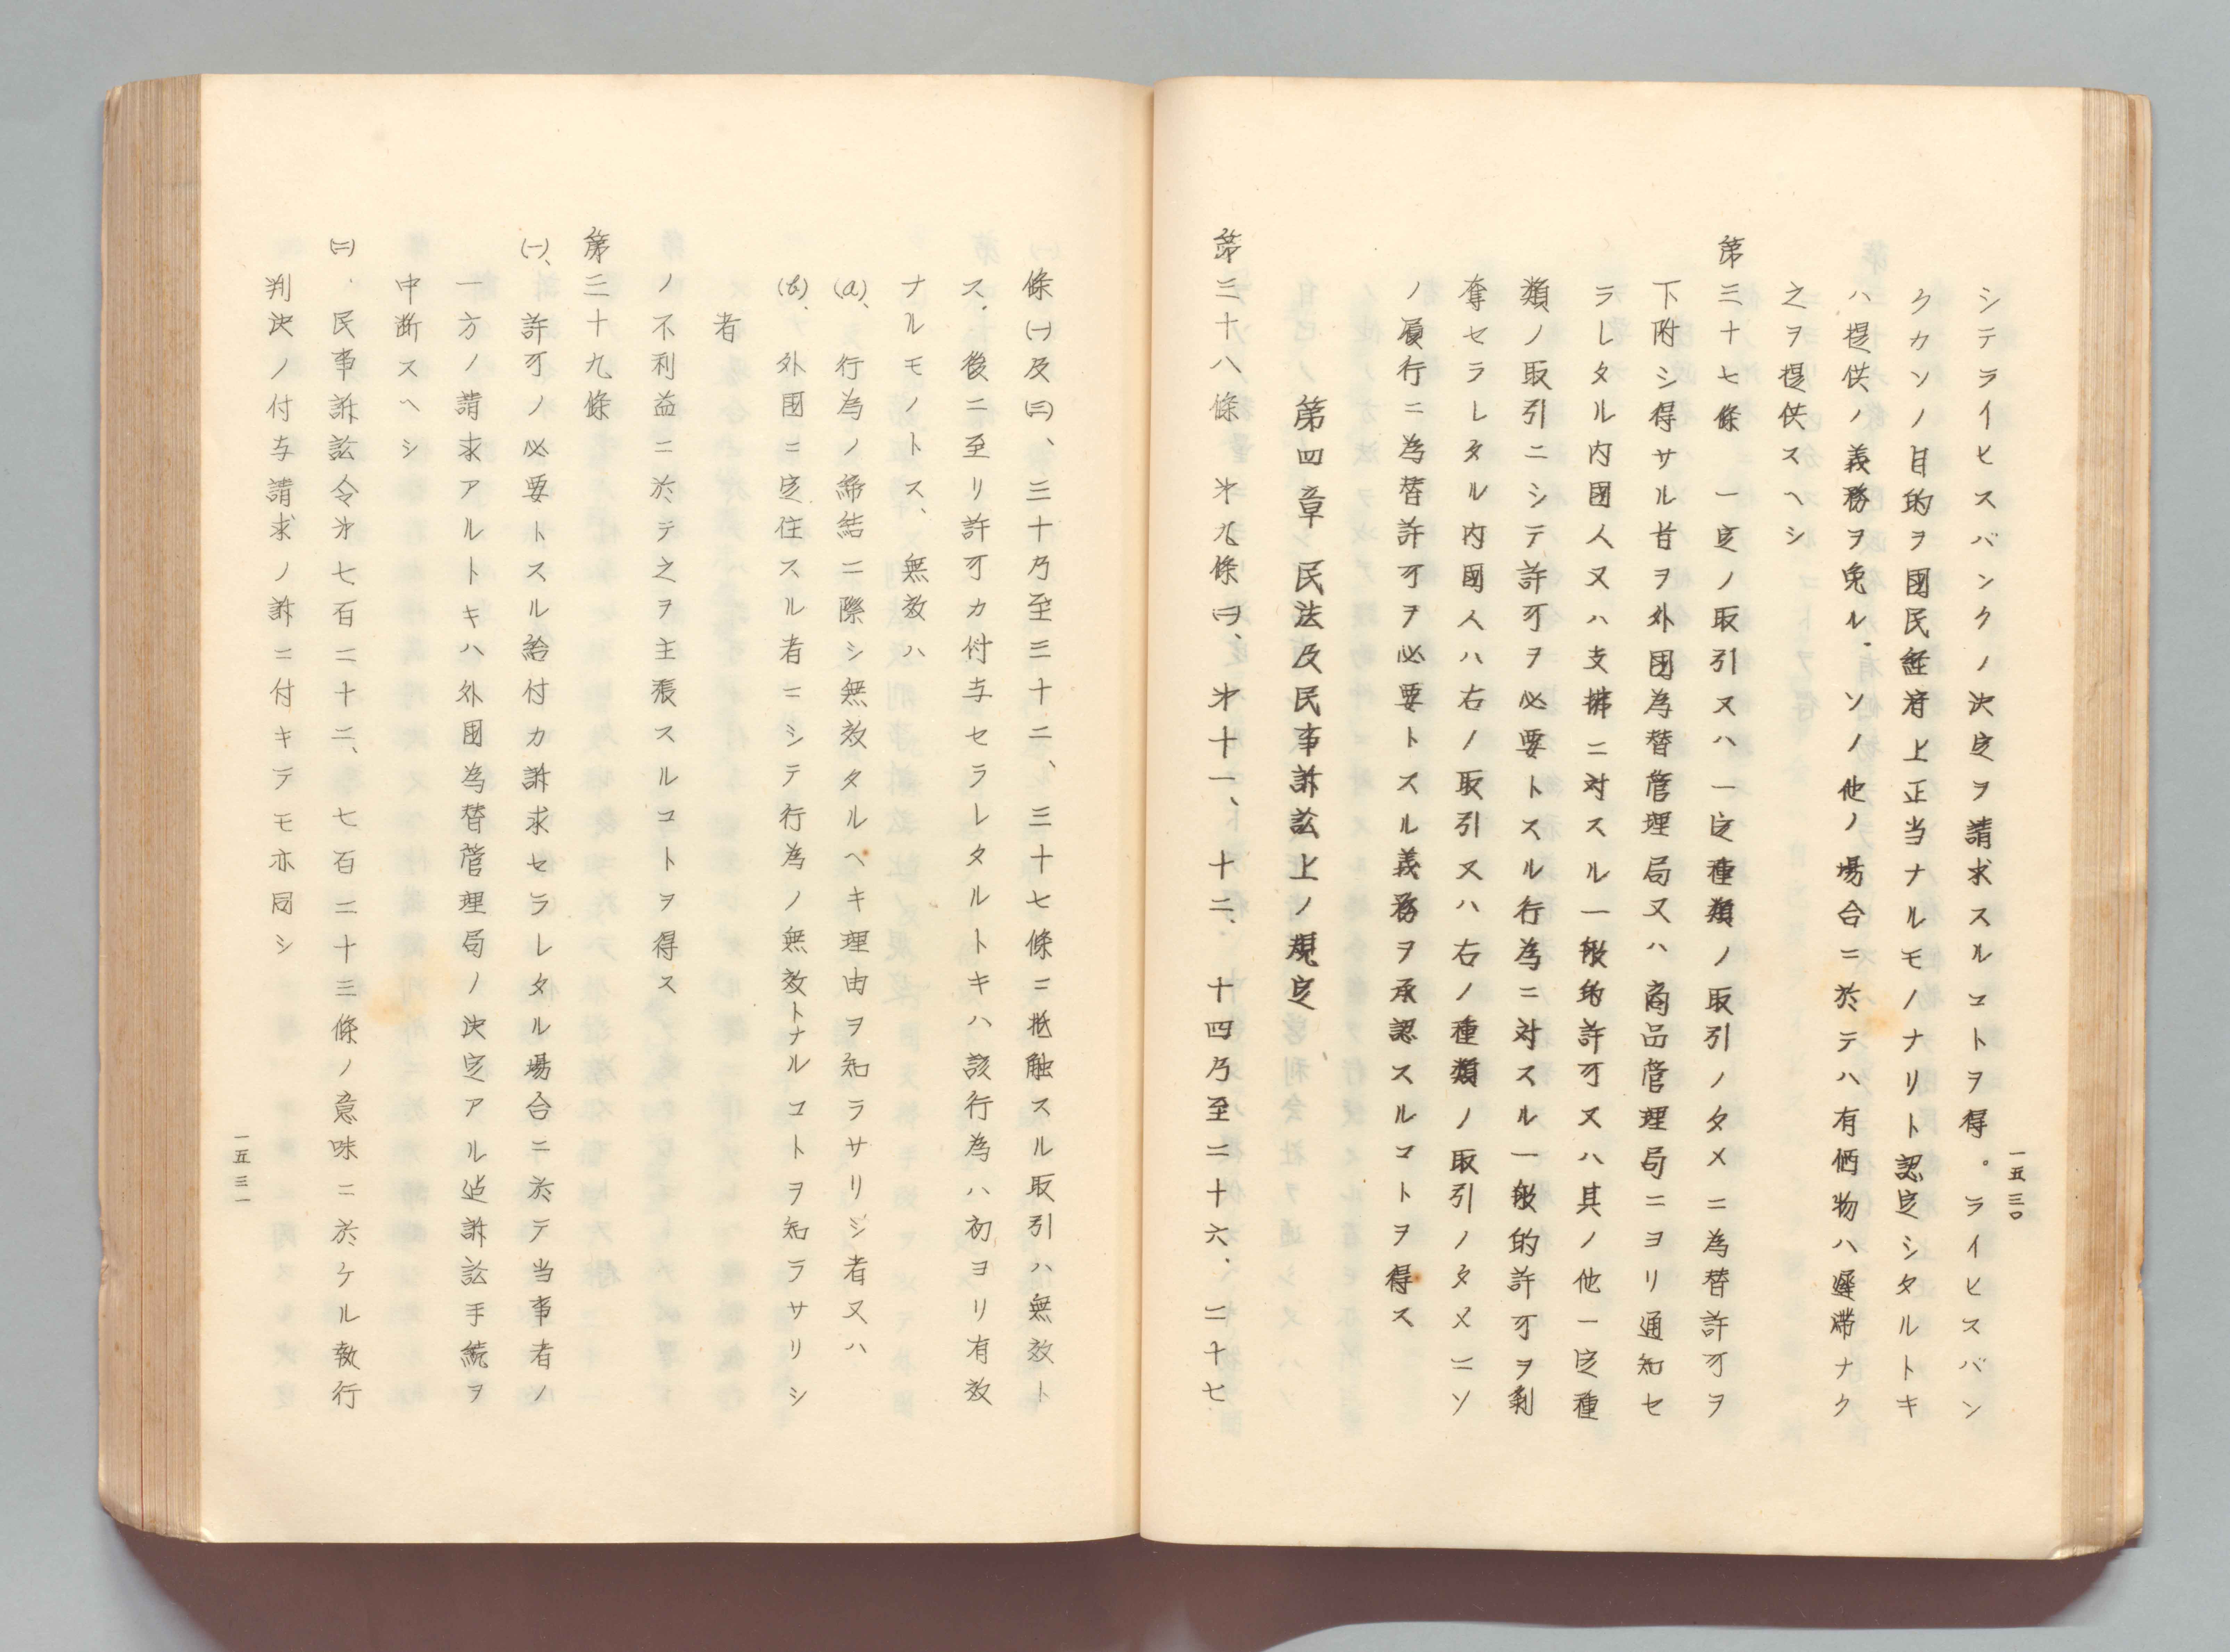 シテライヒスバンクノ決定ヲ請求スルコトヲ得。ライヒスバン
クカソノ目的ヲ國民経済上正当ナルモノナリト認定シタルトキ
ハ提供ノ義務ヲ免ル.ソノ他ノ場合ニ於テハ有価物ハ遅滞ナク
之ヲ提供スヘシ
第三十七條 一定ノ取引又ハ一定種類ノ取引ノタメニ為替許可ヲ
下附シ得サル旨ヲ外国為替管理局又ハ商品管理局ニヨリ通知セ
ラレタル内國人又ハ支拂ニ対スル一般的許可又ハ其ノ他一定種
類ノ取引ニシテ許可ヲ必要トスル行為ニ対スル一般的許可ヲ剥
奪セラレタル内國人ハ右ノ取引又ハ右ノ種類ノ取引ノタメニソ
ノ履行ニ為替許可ヲ必要トスル義務ヲ承認スルコトヲ得ス
第四章 民法及民事訴訟上ノ規定
第三十八條 第九條㈣、第十一、十二、十四乃至二十六.二十七
一五三〇
條㈠及㈢、三十乃至三十二、三十七條ニ抵触スル取引ハ無効ト
ス.後ニ至リ許可カ付与セラレタルトキハ該行為ハ初ヨリ有効
ナルモノトス、無効ハ
(a)、行為ノ締結ニ際シ無効タルヘキ理由ヲ知ラサリシ者又ハ
(b).外国ニ定住スル者ニシテ行為ノ無効トナルコトヲ知ラサリシ
者
ノ不利益ニ於テ之ヲ主張スルコトヲ得ス
第三十九條
㈠、許可ノ必要トスル給付カ訴求セラレタル場合ニ於テ当事者ノ
一方ノ請求アルトキハ外国為替管理局ノ決定アル迠訴訟手続ヲ
中断スヘシ
㈡.民事訴訟令第七百二十二、七百二十三條ノ意味ニ於ケル執行
判決ノ付与請求ノ訴ニ付キテモ亦同シ
一五三一